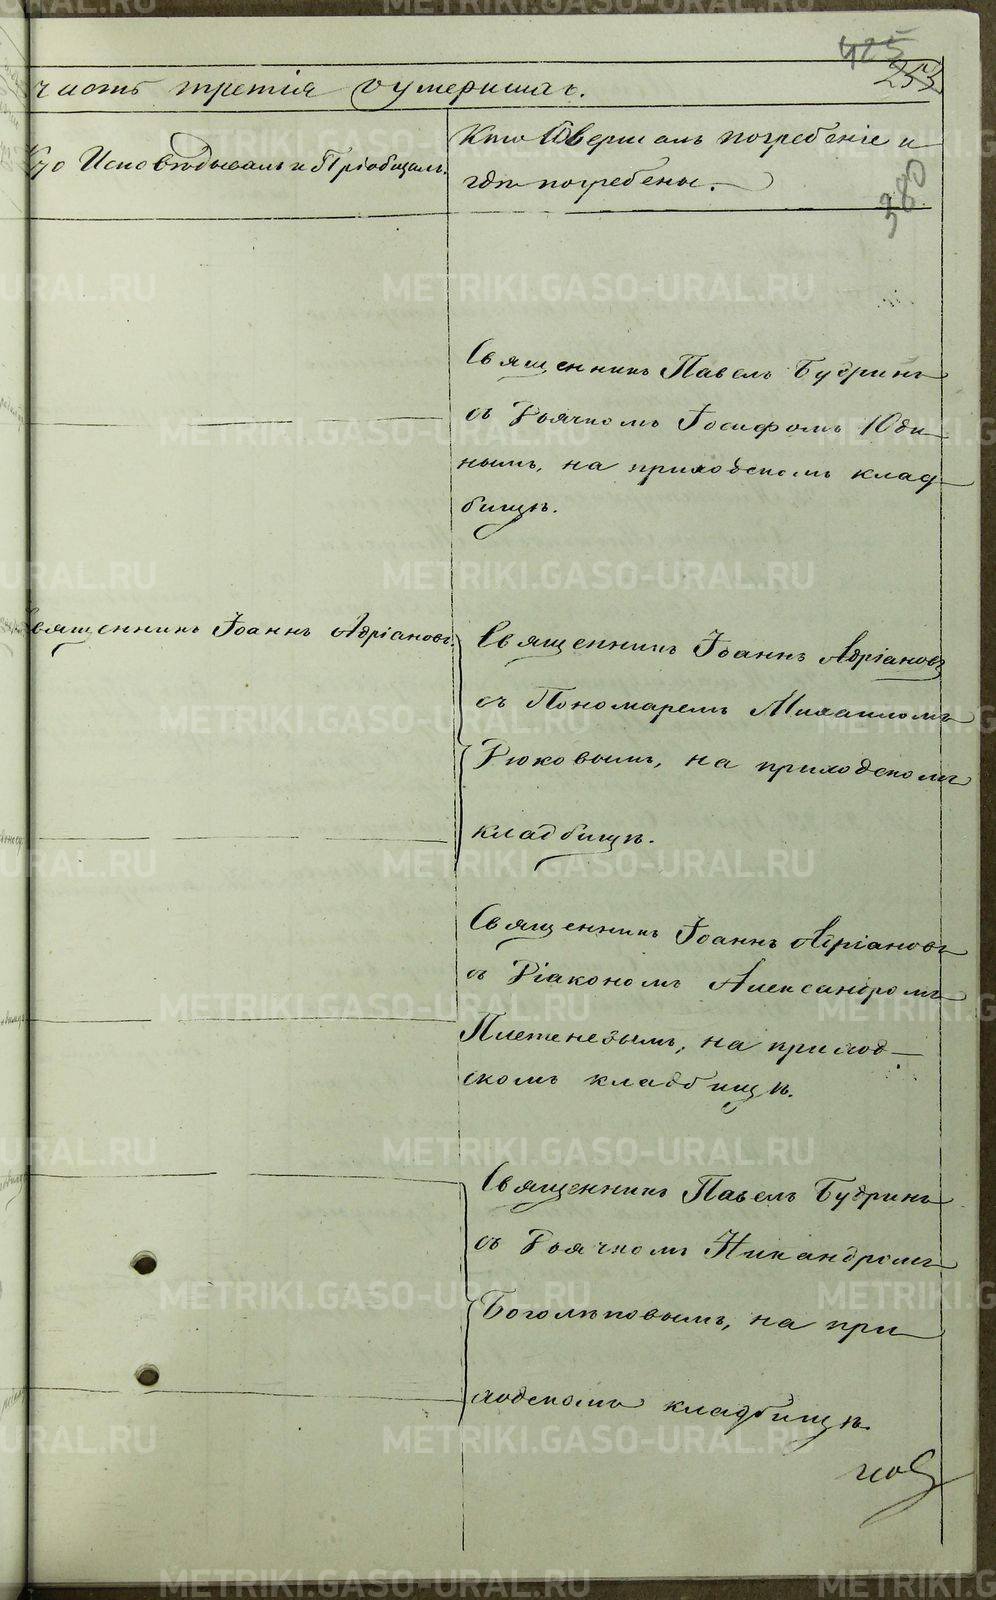 425
253
часть третія о умершихъ.
Кто Исповѣдывалъ и Пріобщалъ.
Кто Совершалъ погребеніе и
гдѣ погребены.
380
Священникъ Павелъ Будринъ
съ Дьячкомъ Іосифомъ Юди-
нымъ, на приходскомъ клад-
бищѣ.
Священникъ Іоаннъ Адріановъ.
Священникъ Іоаннъ Адріановъ
съ Пономаремъ Михаиломъ
Рюковымъ, на приходскомъ
кладбищѣ.
Священникъ Іоаннъ Адріановъ
съ Діакономъ Александромъ
Плетеневымъ, на приход-
скомъ кладбищѣ.
Священникъ Павелъ Будринъ
съ Дьячкомъ Никандромъ
Боголѣповымъ, на при-
ходскомъ кладбищѣ.
METRIKI.GASO-URAL.RU